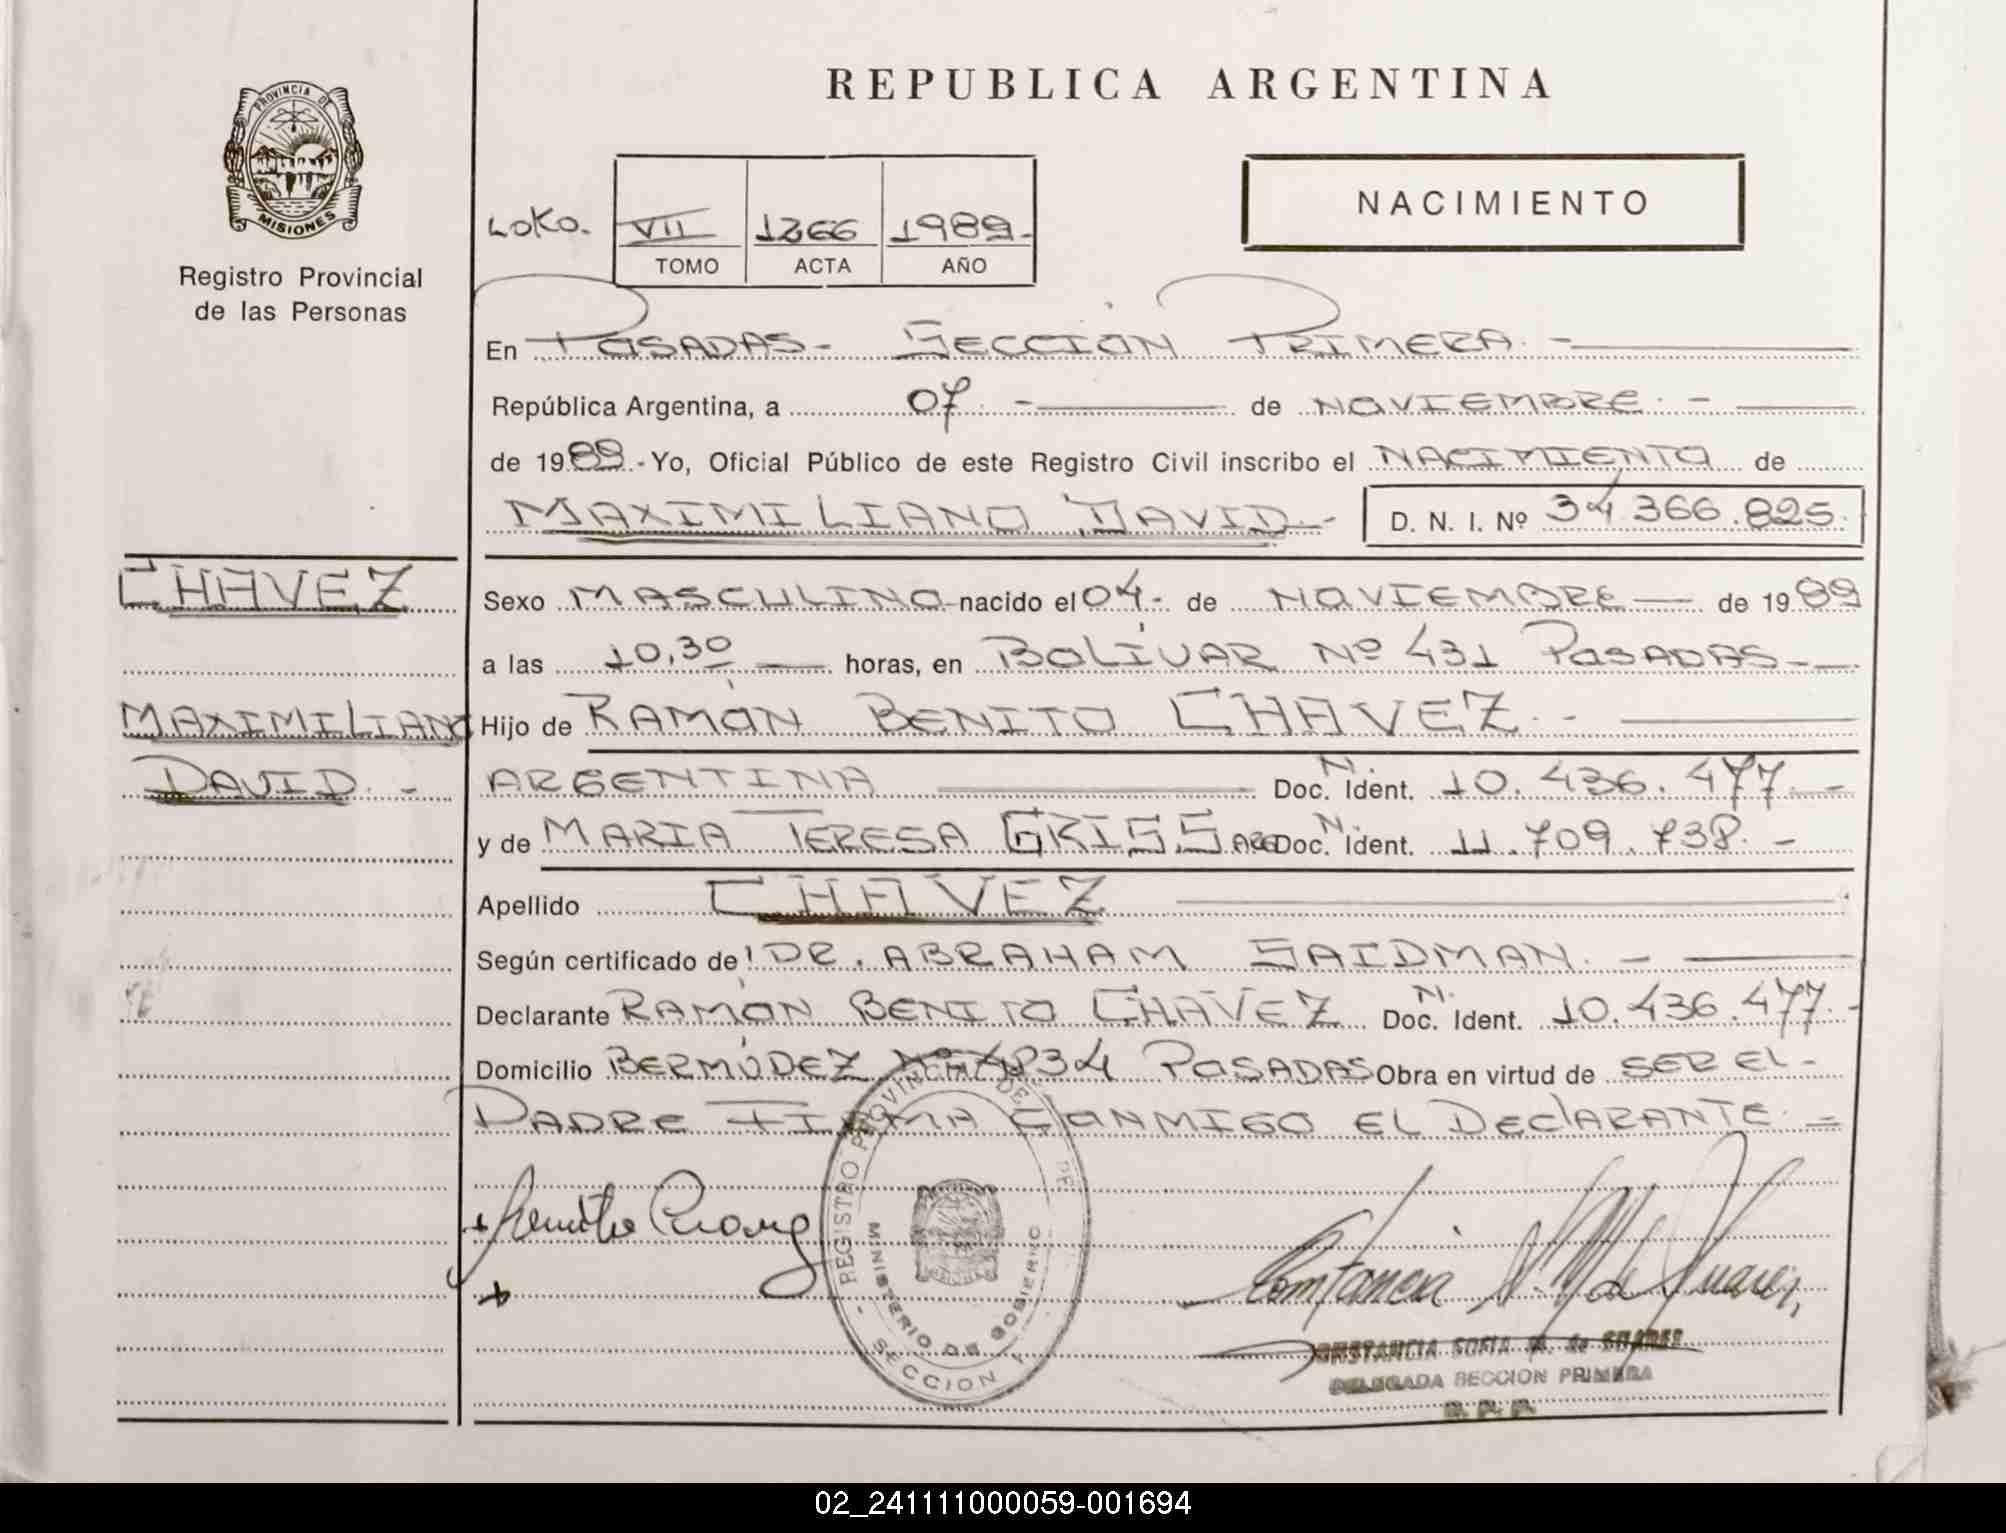 REPUBLICA ARGENTINA
PROVINCIA DE MISIONES
Registro Provincial
de las Personas
NACIMIENTO
VII 1266 1989.-
TOMO ACTA AÑO
En POSADAS- SECCIÓN PRIMERA.-
República Argentina, a 07.- de NOVIEMBRE.-
de 1989.- Yo, Oficial Público de este Registro Civil inscribo el NACIMIENTO de
MAXIMILIANO DAVID.- D. N. I. Nº 34.366.825.
CHAVEZ
MAXIMILIANO
DAVID.-
Sexo MASCULINO nacido el 04.- de NOVIEMBRE de 1989
a las 10,30 horas, en BOLÍVAR Nº 431 POSADAS-
Hijo de RAMÓN BENITO CHAVEZ.-
ARGENTINA Doc. N. Ident. 10.436.477.-
y de MARIA TERESA GRISS ARG Doc. N. Ident. 11.709.738.-
Apellido CHAVEZ
Según certificado de: DR. ABRAHAM SAIDMAN.-
Declarante RAMÓN BENITO CHAVEZ Doc. N. Ident. 10.436.477.-
Domicilio BERMÚDEZ POSADAS Obra en virtud de SER EL-
PADRE FIRMA CONMIGO EL DECLARANTE.-
REGISTRO PROVINCIAL DE
MINISTERIO DE GOBIERNO
SECCION
CONSTANCIA SOFIA M. de SUAREZ
DELEGADA SECCION PRIMERA
R. P. P.
02_241111000059-001694